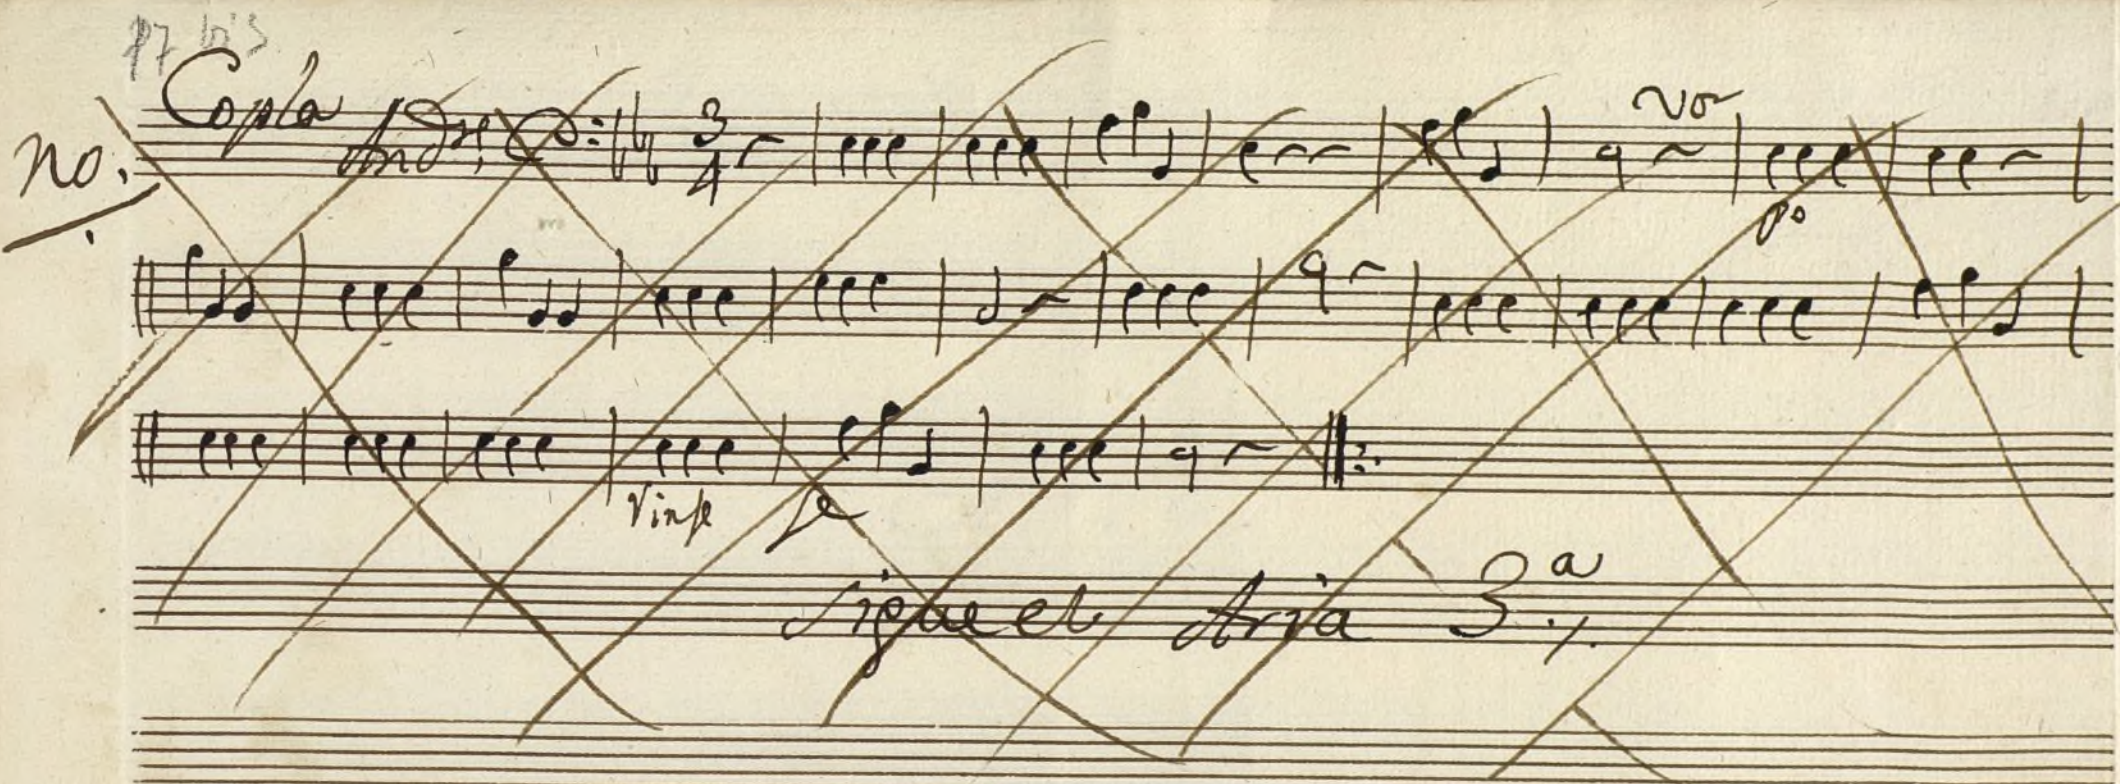 17 bis
Copla
No.
And.e 3/4
vo
po
Vinse fe
Sigue el Aria 3.a